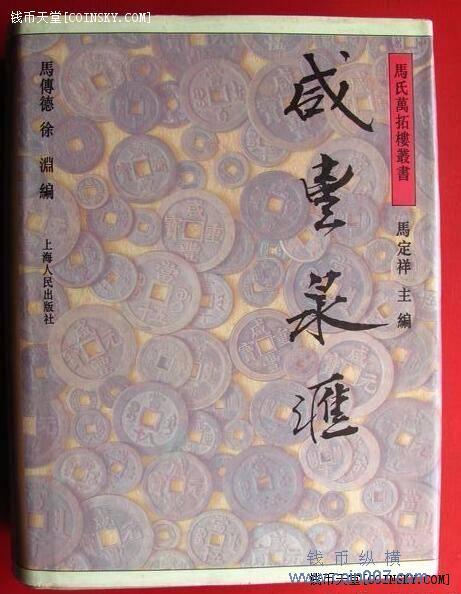 钱币天堂[COINSKY.COM]
馬氏萬拓樓叢書
馬定祥 主編
咸豐泉滙
馬傳德 徐淵編
上海人民出版社
钱币纵横
www.coin007.com
钱币天堂[COINSKY.COM]